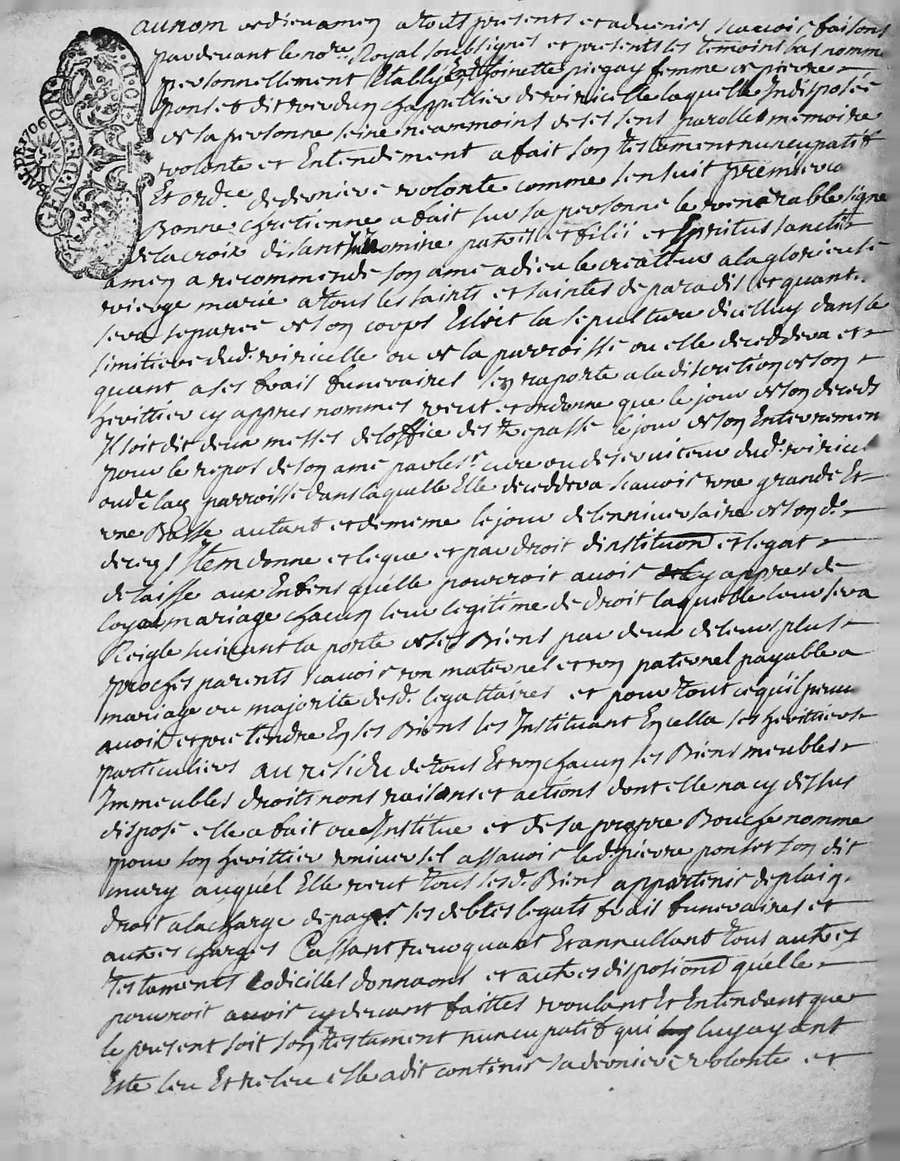 au nom de dieu amen a tous presents et advenirs scavoir faisons
par devant le no.re Royal soubsignés et presents les temoins bas nommé
personnellement Etably Enthoinette piegay femme de pierre
ponset dit verdun chappellier de viricelle laquelle Indisposée
de sa personne seine neanmoins de ses sens parolle memoire
volonte et Entendement a fait son testament nuncupatif
Et ordre de derniere volonte comme sensuit premiere
Bonne chretienne a fait sur sa personne le venerable signe
de la croix disant In nomine patris et filii et spiritus sancti
amen a recommende son ame a dieu le createur a la glorieuse
vierge marie a tous les saints et saintes de paradis et quant
sera separee de son corps Esleit la sepulture dicelluy dans le
simitiere dud. viricelle ou de la parroisse ou elle deceddera et
quant a ses frais funeraires sen raporte a la discretion de son
herittier cy appres nommés veut et ordonne que le jour de son deceds
Il soit dit deux messes de loffice des trepassé le jour de son Enterremen
pour le repos de son ame par le sr. curé ou deserviteur dud. viricel
ou de la parroisse dans laquelle Elle deceddera scavoir une grande Et
une Basse autant et de meme le jour de lenniversaire de son d.
deceds Item donne et legue et par droit dinstitution et legat
delaisse aux Enfens quelle pourroit avoir cy appres de
loyal mariage chacun leur legitime de droit laquelle leur sera
Reigle suivant la porte de ses Biens par deux de leurs plus
proches parents scavoir un maternel et un paternel payable a
mariage ou majorite desd. legattaires et pour tout ce quil peuv
avoir et pretendre En ses Biens les Instituant En cella ses herittiers
particuliers au residu de tous Et un chacun ses Biens meubles
Immeubles droits noms raisons et actions dont elle na cy dessus
disposé elle a fait Institue et de sa propre Bouche nomme
pour son herittier universel assavoir led. pierre ponset son dit
mary auquel Elle veut tous sesd. Biens appartenir de plain
droit a la charge de payer ses debtes legats frais funeraires et
autres charges Cassant revocquant Et annullant tous autres
testaments Codicilles donnaons et autres disposions quelle
pourroit avoir cy devant faittes voulant Et Entendant que
le present soit son testament nuncupatif qui luy ayant
Este leu Et releu elle a dit contenir sa derniere volonte et